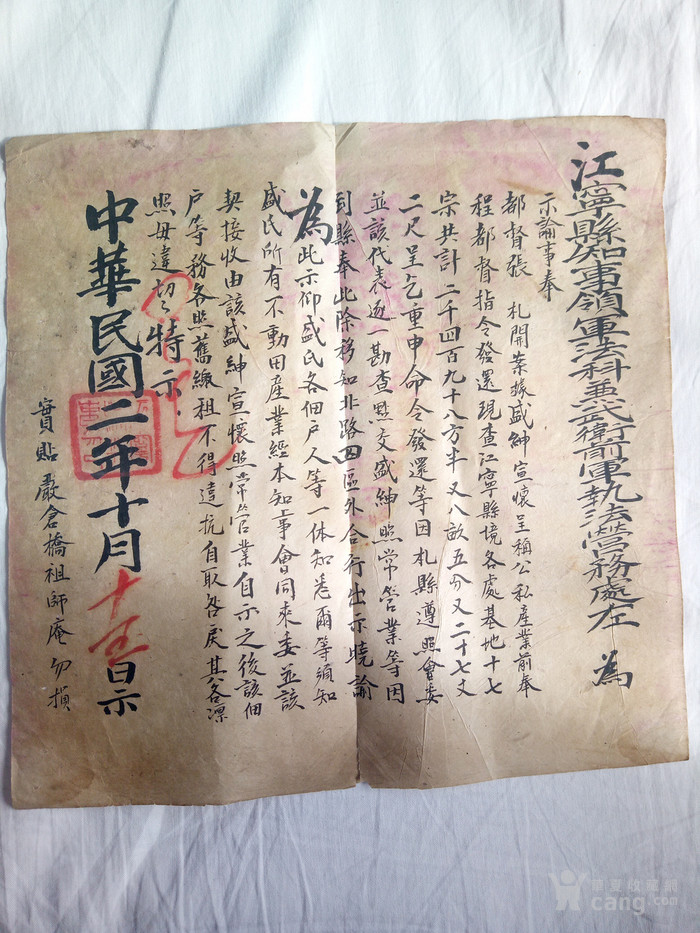 江寧縣知事領軍法科兼武衛前軍執法營務處左　為
示諭事奉
都督張　札開案據盛紳宣懷呈稱公私產業前奉
程都督指令發還現查江寧縣境各處基地十七
宗共計二千四百九十八方半又八畝五分又二十七丈
二尺呈乞重申命令發還等因札縣遵照會委
並該代表逐一勘查點交盛紳照常管業等因
到縣奉此除移知北路四區外合行出示曉諭
為此示仰盛氏各佃戶人等一体知悉爾等須知
盛氏所有不動田產業經本知事會同來委並該
契接收由該盛紳宣懷照常管業自示之後該佃
戶等務各照舊繳租不得違抗自取咎戾其各凛
照毋違切々特示
中華民國二年十月十五日示
實貼嚴倉橋祖師庵勿損
華夏收藏網
cang.com